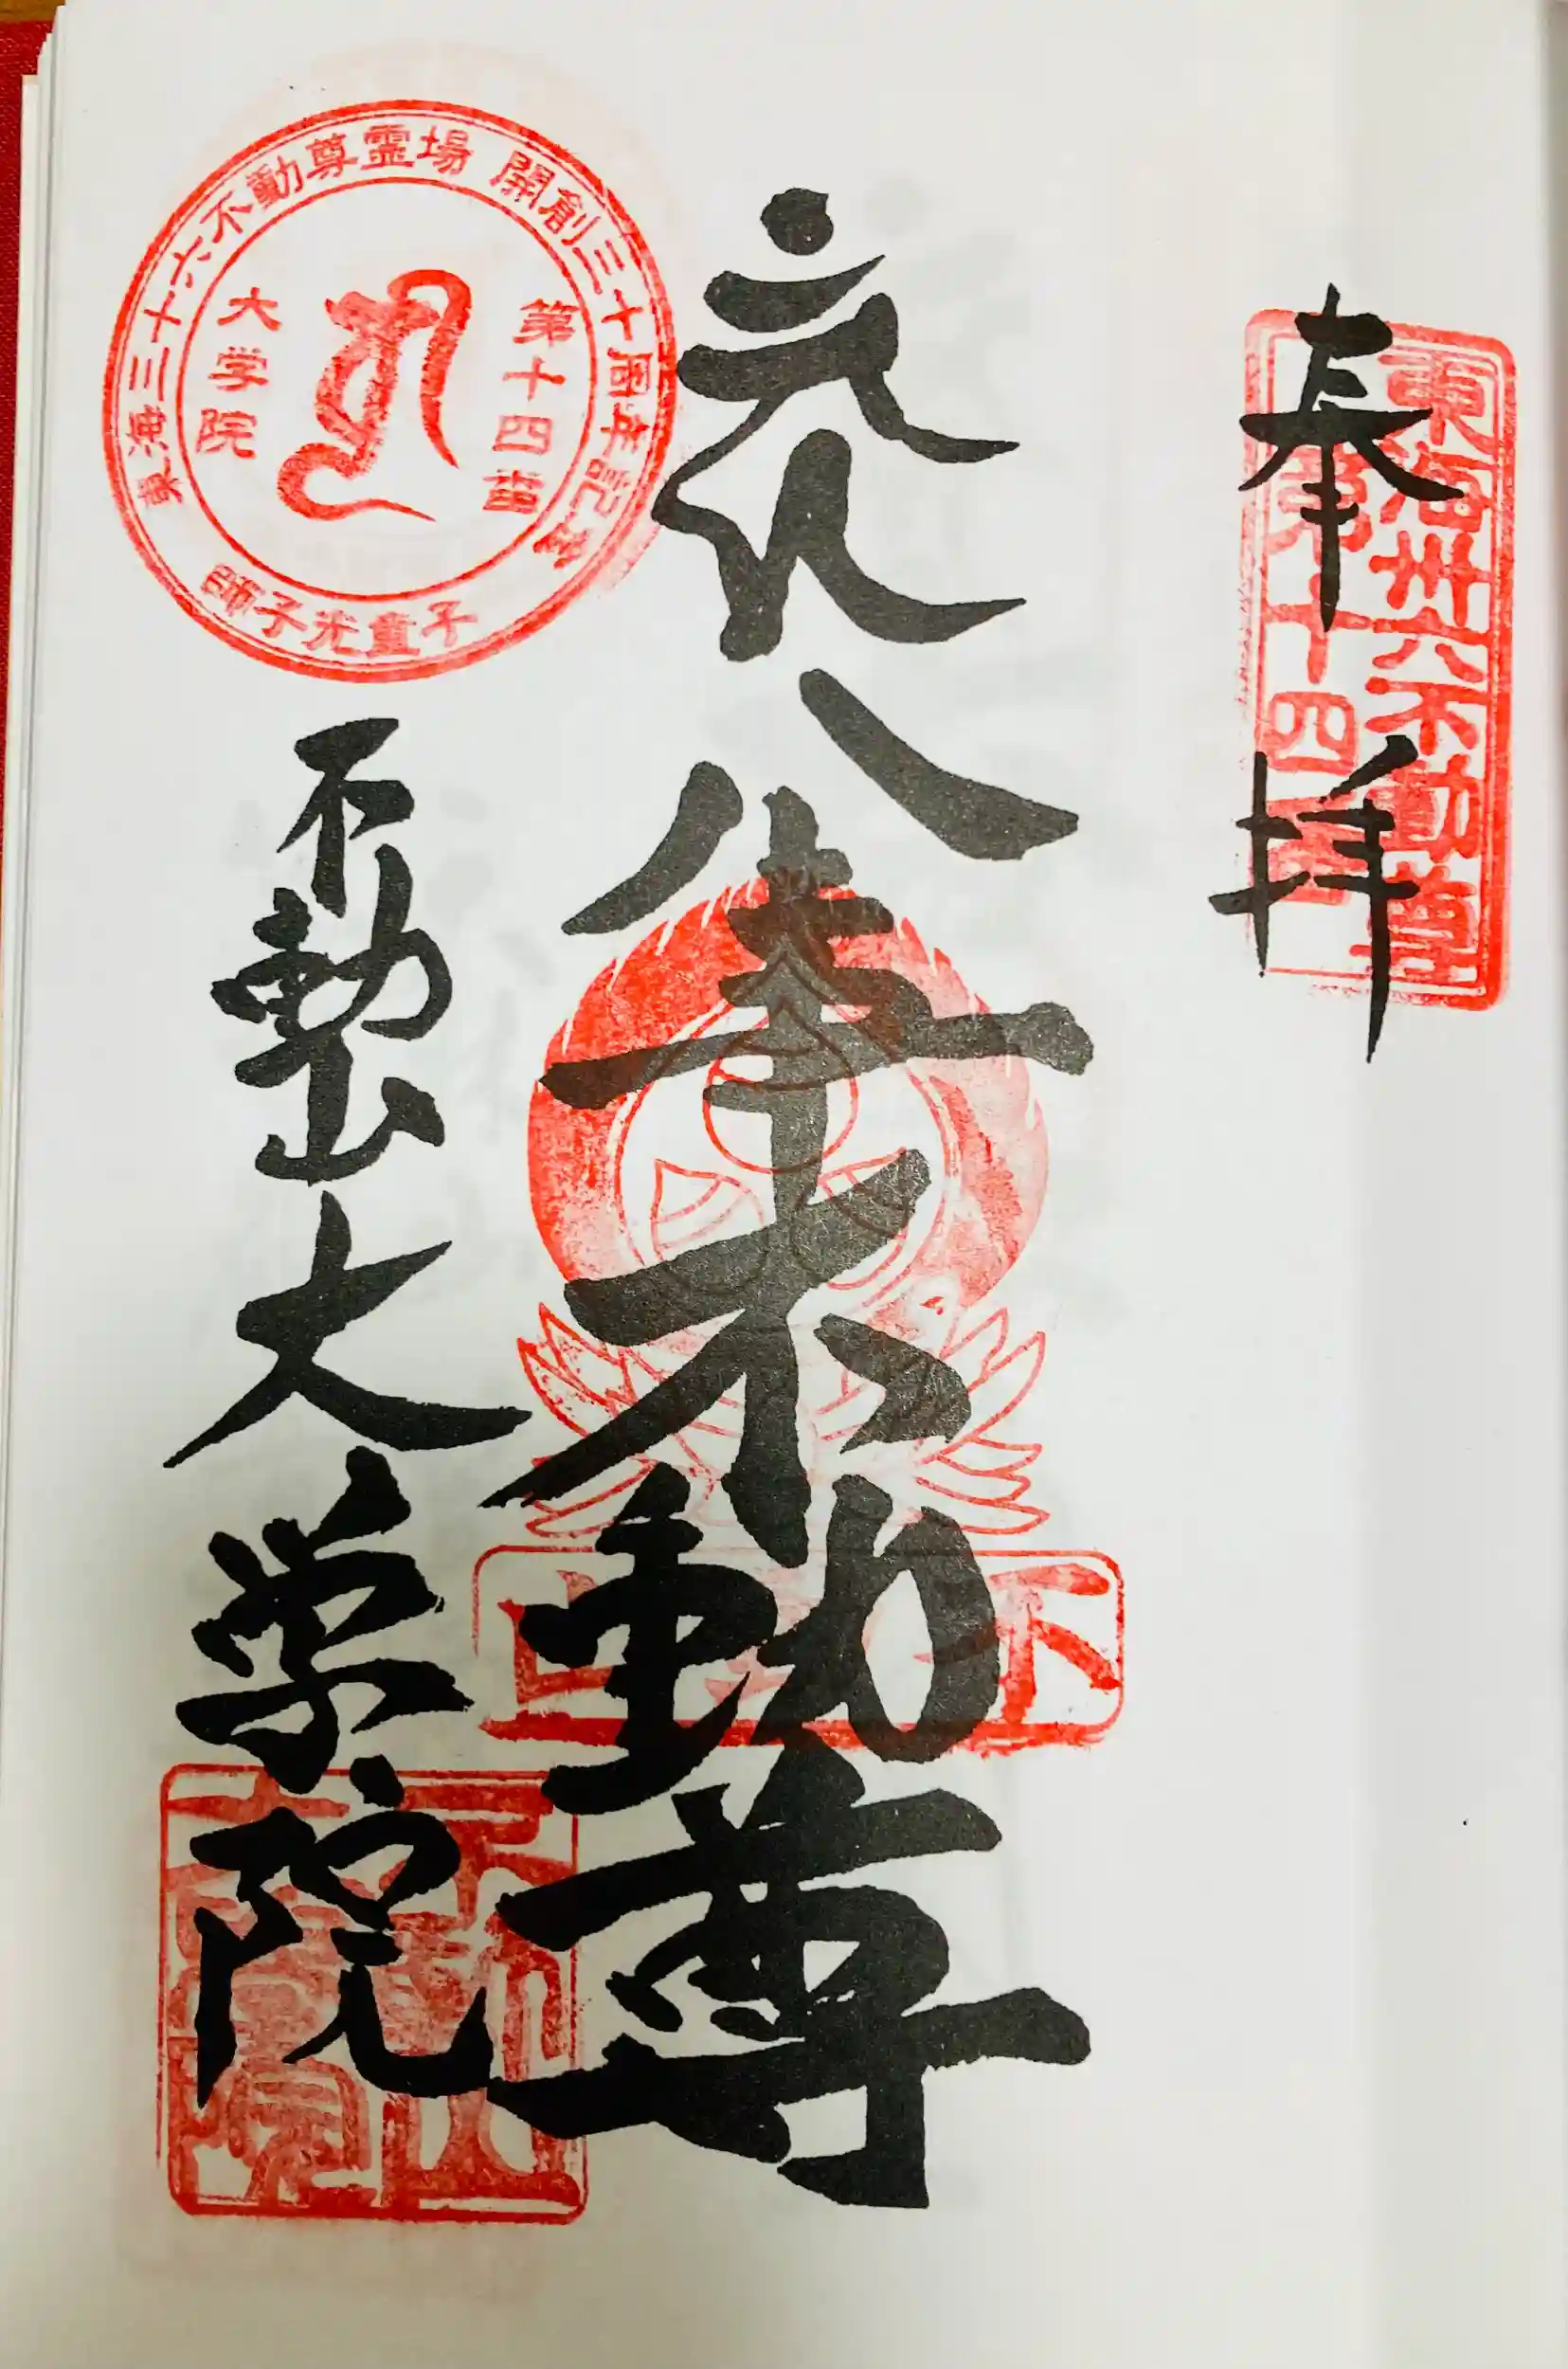 奉拝
東海卅六不動尊
第十四番
八事不動尊
不動山大学院
東海三十六不動尊霊場 開創三十周年記念
第十四番
大学院
師子光童子